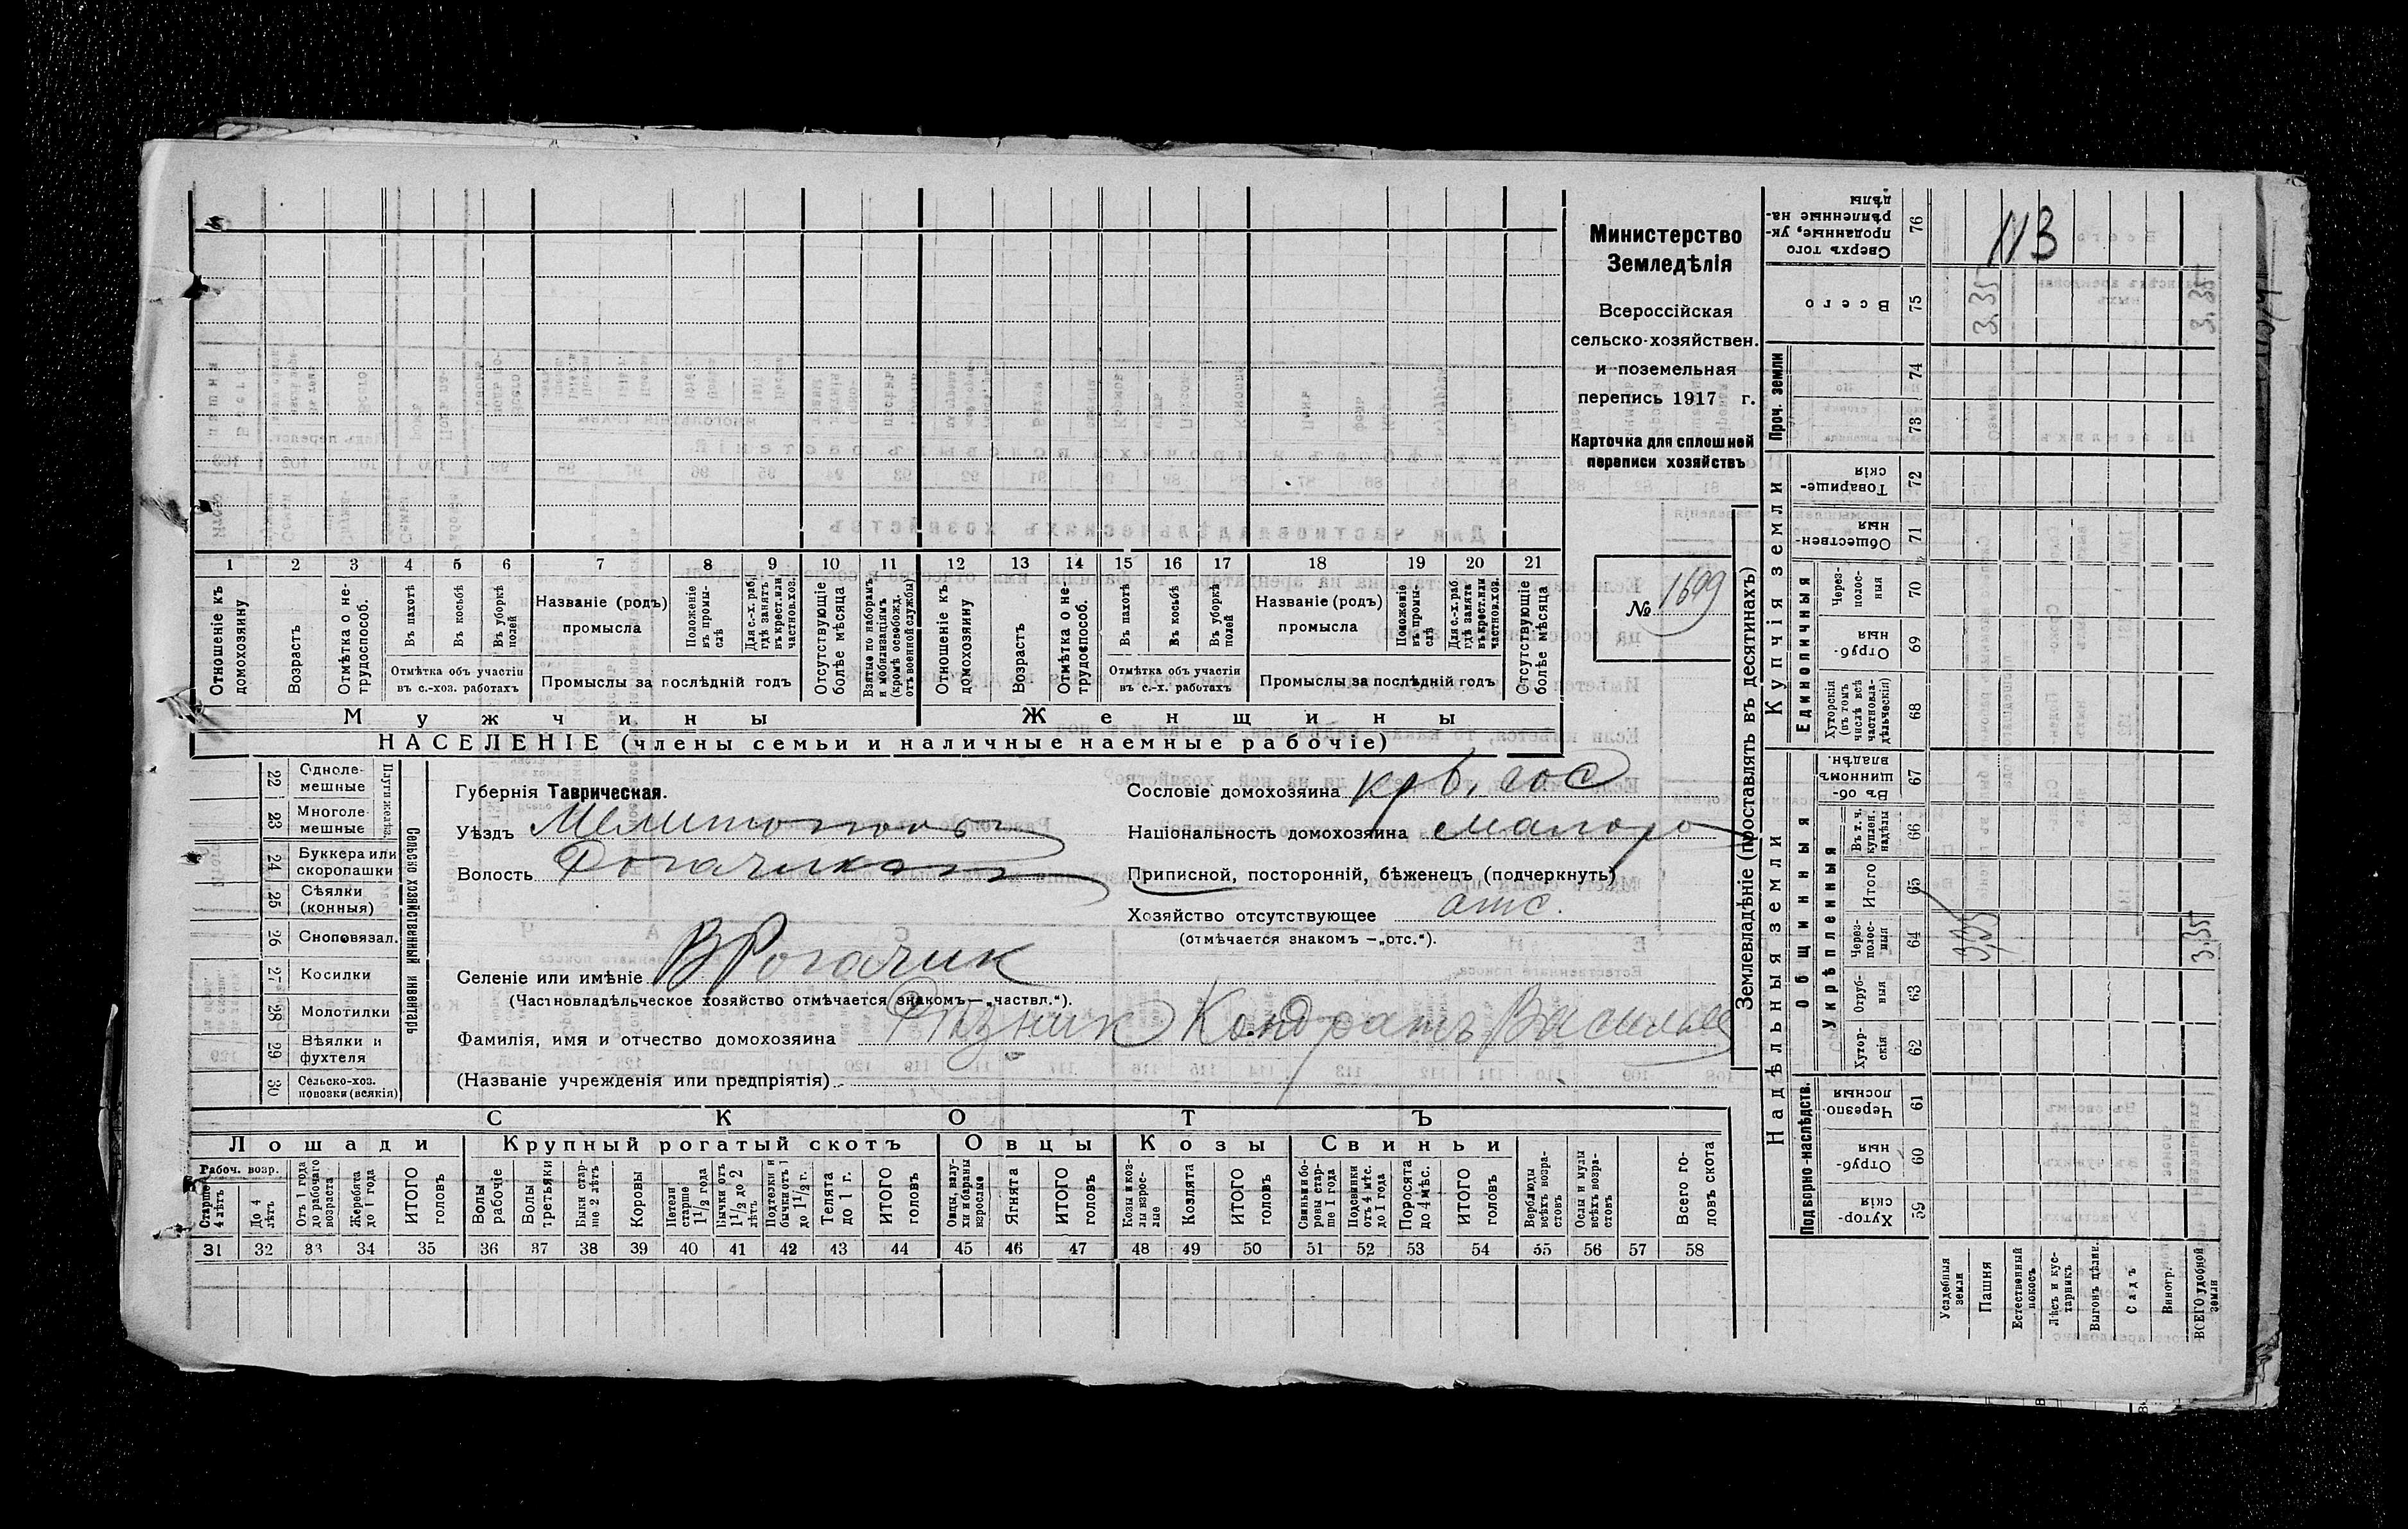 Министерство
Земледѣлія
Всероссійская
сельско-хозяйствен.
и поземельная
перепись 1917 г.
Карточка для сплошной
переписи хозяйствъ
№ 1699
113
1 2 3 4 5 6 7 8 9 10 11 12 13 14 15 16 17 18 19 20 21
Отношеніе къ домохозяину
Возрастъ
Отмѣтка о нетрудоспособ.
Въ пахотѣ
Въ косьбѣ
Въ уборкѣ полей
Отмѣтка объ участіи
въ с.-хоз. работахъ
Названіе (родъ)
промысла
Положеніе въ промыслѣ
Для с.-х. раб. гдѣ занятъ въ крест. или частнов. хоз.
Промыслы за послѣдній годъ
Отсутствующіе болѣе мѣсяца
Взятые по наборамъ и мобилизаціямъ (кромѣ освобожд. отъ военной службы)
Отношеніе къ домохозяину
Возрастъ
Отмѣтка о нетрудоспособ.
Въ пахотѣ
Въ косьбѣ
Въ уборкѣ полей
Отмѣтка объ участіи
въ с.-х. работахъ
Названіе (родъ)
промысла
Положеніе въ промыслѣ
Для с.-х. раб. гдѣ занята въ крест. или частнов. хоз.
Промыслы за послѣдній годъ
Отсутствующіе болѣе мѣсяца
Мужчины Женщины
НАСЕЛЕНІЕ (члены семьи и наличные наемные рабочіе)
22 Одноле-мешные
23 Многоле-мешные
Плуги желѣз.
24 Буккера или скоропашки
25 Сѣялки (конныя)
26 Сноповязал.
27 Косилки
28 Молотилки
29 Вѣялки и фухтеля
30 Сельско-хоз. повозки (всякія)
Сельско хозяйственный инвентарь
Губернія Таврическая.
Уѣздъ Мелитополь
Волость Рогачикская
Селеніе или имѣніе В Рогачик
(Частновладѣльческое хозяйство отмѣчается знакомъ—„частвл.“).
Сословіе домохозяина крб. сос
Національность домохозяина малоро
Приписной, посторонній, бѣженецъ (подчеркнуть)
Хозяйство отсутствующее отс.
(отмѣчается знакомъ —„отс.“).
Фамилія, имя и отчество домохозяина Рѣзник Кондратъ Василье
(Названіе учрежденія или предпріятія)
СКОТЪ
Лошади Крупный рогатый скотъ Овцы Козы Свиньи
Рабоч. возр.
Старше 4 лѣтъ
До 4 лѣтъ
Отъ 1 года до рабочаго возраста
Жеребята до 1 года
ИТОГО головъ
Волы рабочіе
Волы третьяки
Быки старше 2 лѣтъ
Коровы
Нетели старше 1 1/2 года
Бычки отъ 1 1/2 до 2 лѣтъ
Подтелки и бычки отъ 1 до 1 1/2 г.
Телята до 1 г.
ИТОГО головъ
Овцы, валухи и бараны взрослые
Ягнята
ИТОГО головъ
Козы и козлы взрослые
Козлята
ИТОГО головъ
Свиньи и боровы старше 1 года
Подсвинки отъ 4 мѣс. до 1 года
Поросята до 4 мѣс.
ИТОГО головъ
Верблюды всѣхъ возрастовъ
Ослы и мулы всѣхъ возрастовъ
Всего головъ скота
31 32 33 34 35 36 37 38 39 40 41 42 43 44 45 46 47 48 49 50 51 52 53 54 55 56 57 58
Землевладѣніе (проставлять въ десятинахъ)
Надѣльныя земли
Купчія земли
Проч. земли
Подворно-наслѣдств.
Общинныя
Укрѣпленныя
Единоличныя
Хуторскія 59
Отрубныя 60
Черезполосныя 61
Хуторскія 62
Отрубныя 63
Черезполосныя 64
Итого 65
Въ т. ч. куплен. надѣлы 66
Въ общинномъ владѣн. 67
Хуторскія (въ томъ числѣ всѣ частновладѣльческія) 68
Отрубныя 69
Черезполосныя 70
Общественныя 71
Товарищескія 72
73
74
Всего 75
Сверхъ того проданные, укрѣпленные надѣлы 76
Усадебныя земли
Пашня
Естественный покосъ
Лѣсъ и кустарникъ
Выгонъ цѣлин.
Садъ
Виногр.
ВСЕГО удобной земли
3,35
3.35
3.35
3.35